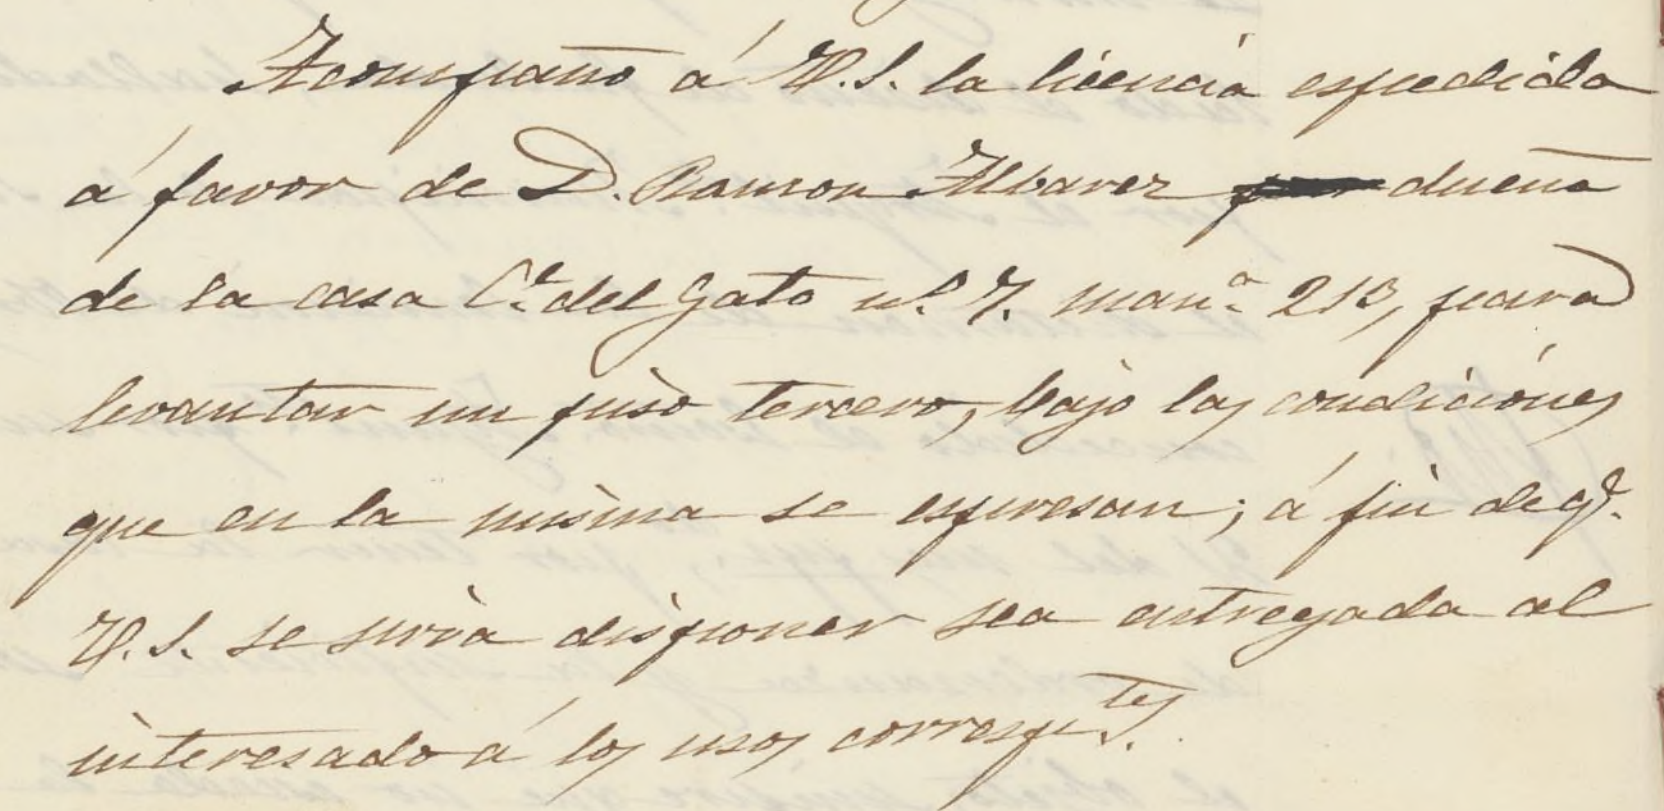 Acompaño á V.S. la licencia espedida
á favor de D. Ramon Albarez dueño
de la casa C.e del Gato n.o 7. man.a 213, para
levantar un piso tercero, bajo las condiciones
que en la misma se espresan; á fin de q.e
V.S. se sirva disponer sea entregada al
interesado á los usos corresp.tes